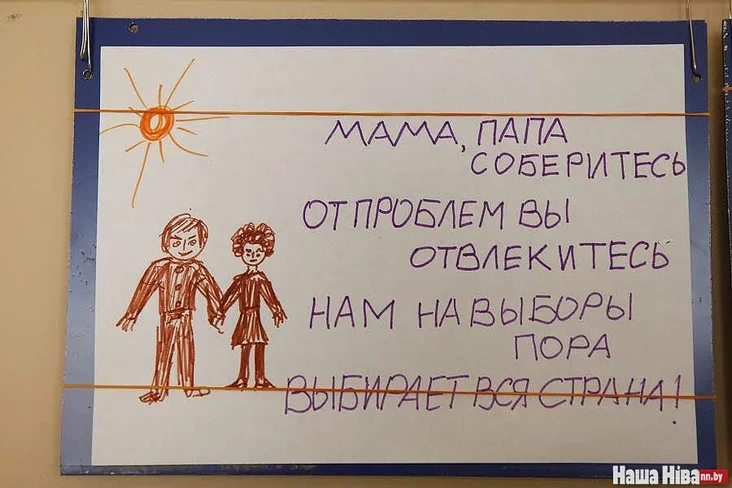 МАМА, ПАПА
СОБЕРИТЕСЬ
ОТ ПРОБЛЕМ ВЫ
ОТВЛЕКИТЕСЬ
НАМ НА ВЫБОРЫ
ПОРА
ВЫБИРАЕТ ВСЯ СТРАНА!
Наша Ніва nn.by